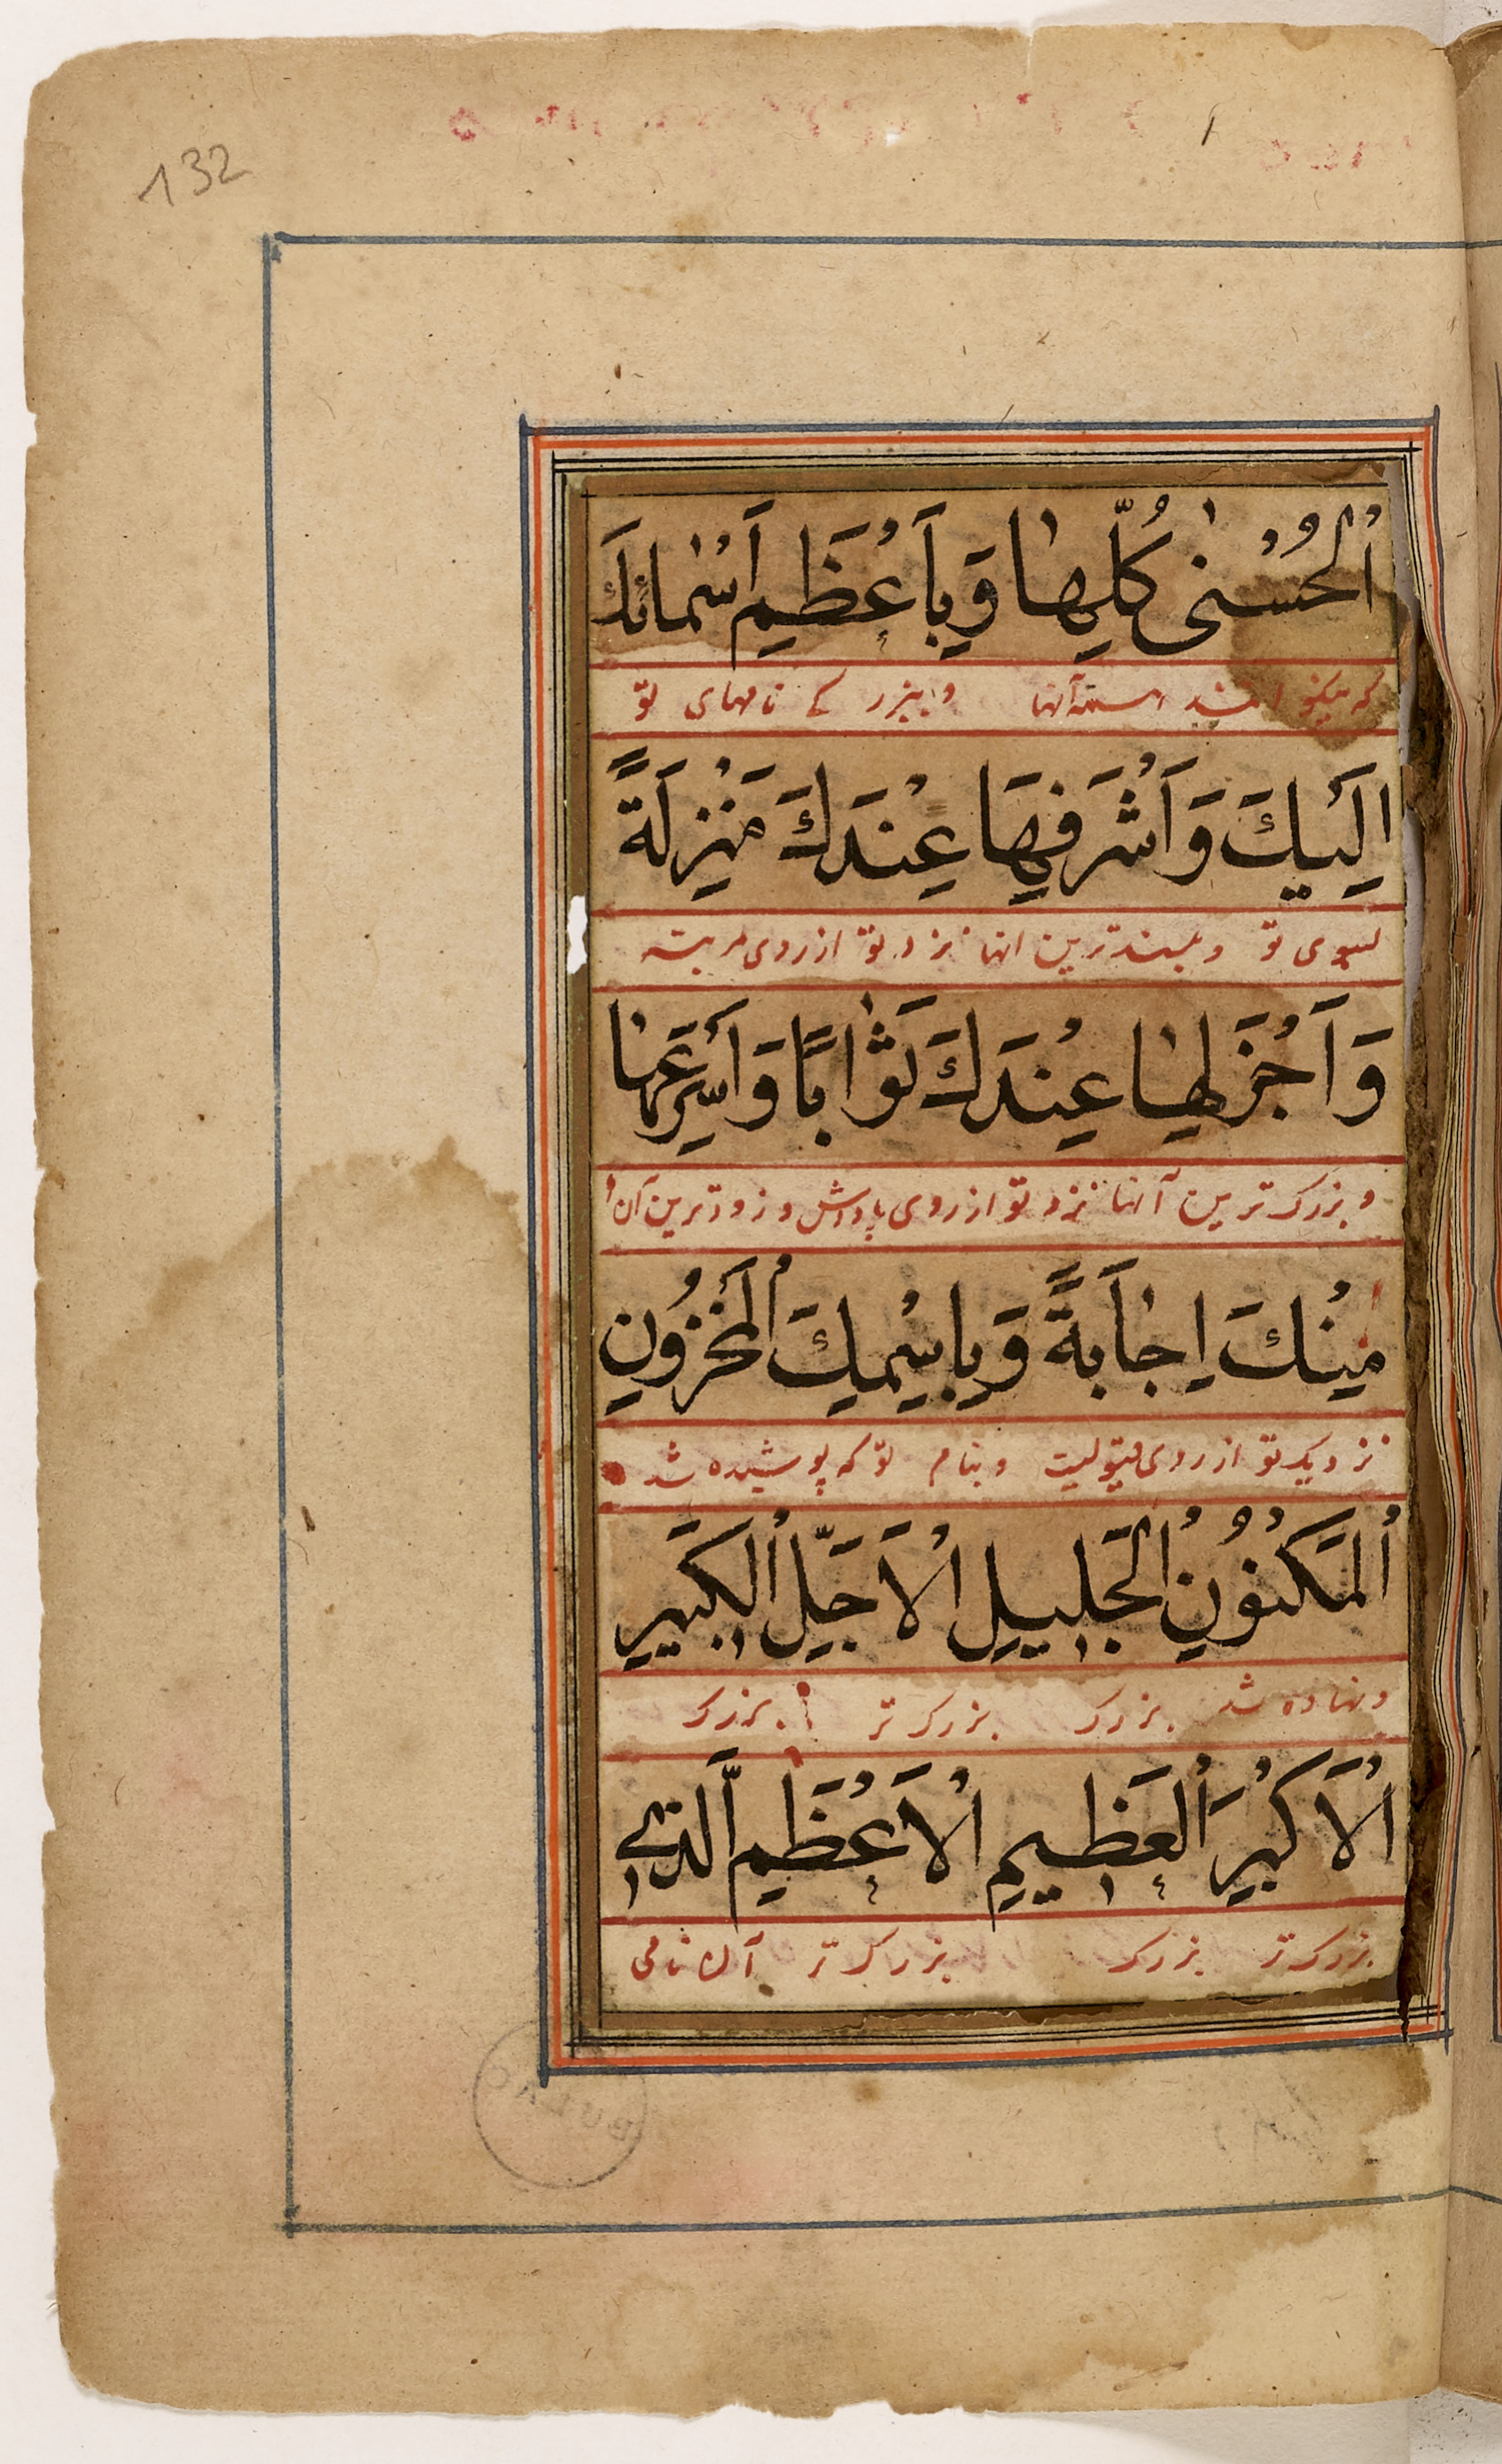 132
اَلْحُسْنٰى كُلِّهٰا وَبِاَعْظَمِ اَسْمٰائِكَ
نامهای تو
اِلَيْكَ وَاَشْرَفِهَا عِنْدَكَ مَنْزِلَةً
بسوی تو و بلندترین انها نزد تو از روی مرتبه
وَاَجْزَلِهٰا عِنْدَكَ ثَوٰابًا وَاَسْرَعِهٰا
و بزرک ترین آنها نزد تو از روی پاداش و زودترین آن
مِنْكَ اِجٰابَةً وَبِاسْمِكَ الْمَخْزُونِ
نزدیک تو از روی و بنام تو که پوشیده شد
اَلْمَكْنُونِ الْجَلِيلِ الْاَجَلِّ الْكَبِيرِ
و نهاده شد بزرک بزرک تر بزرک
اَلْاَكْبَرِ الْعَظِيمِ الْاَعْظَمِ الَّذِي
بزرک تر بزرک بزرک تر آن نامی
BULAC